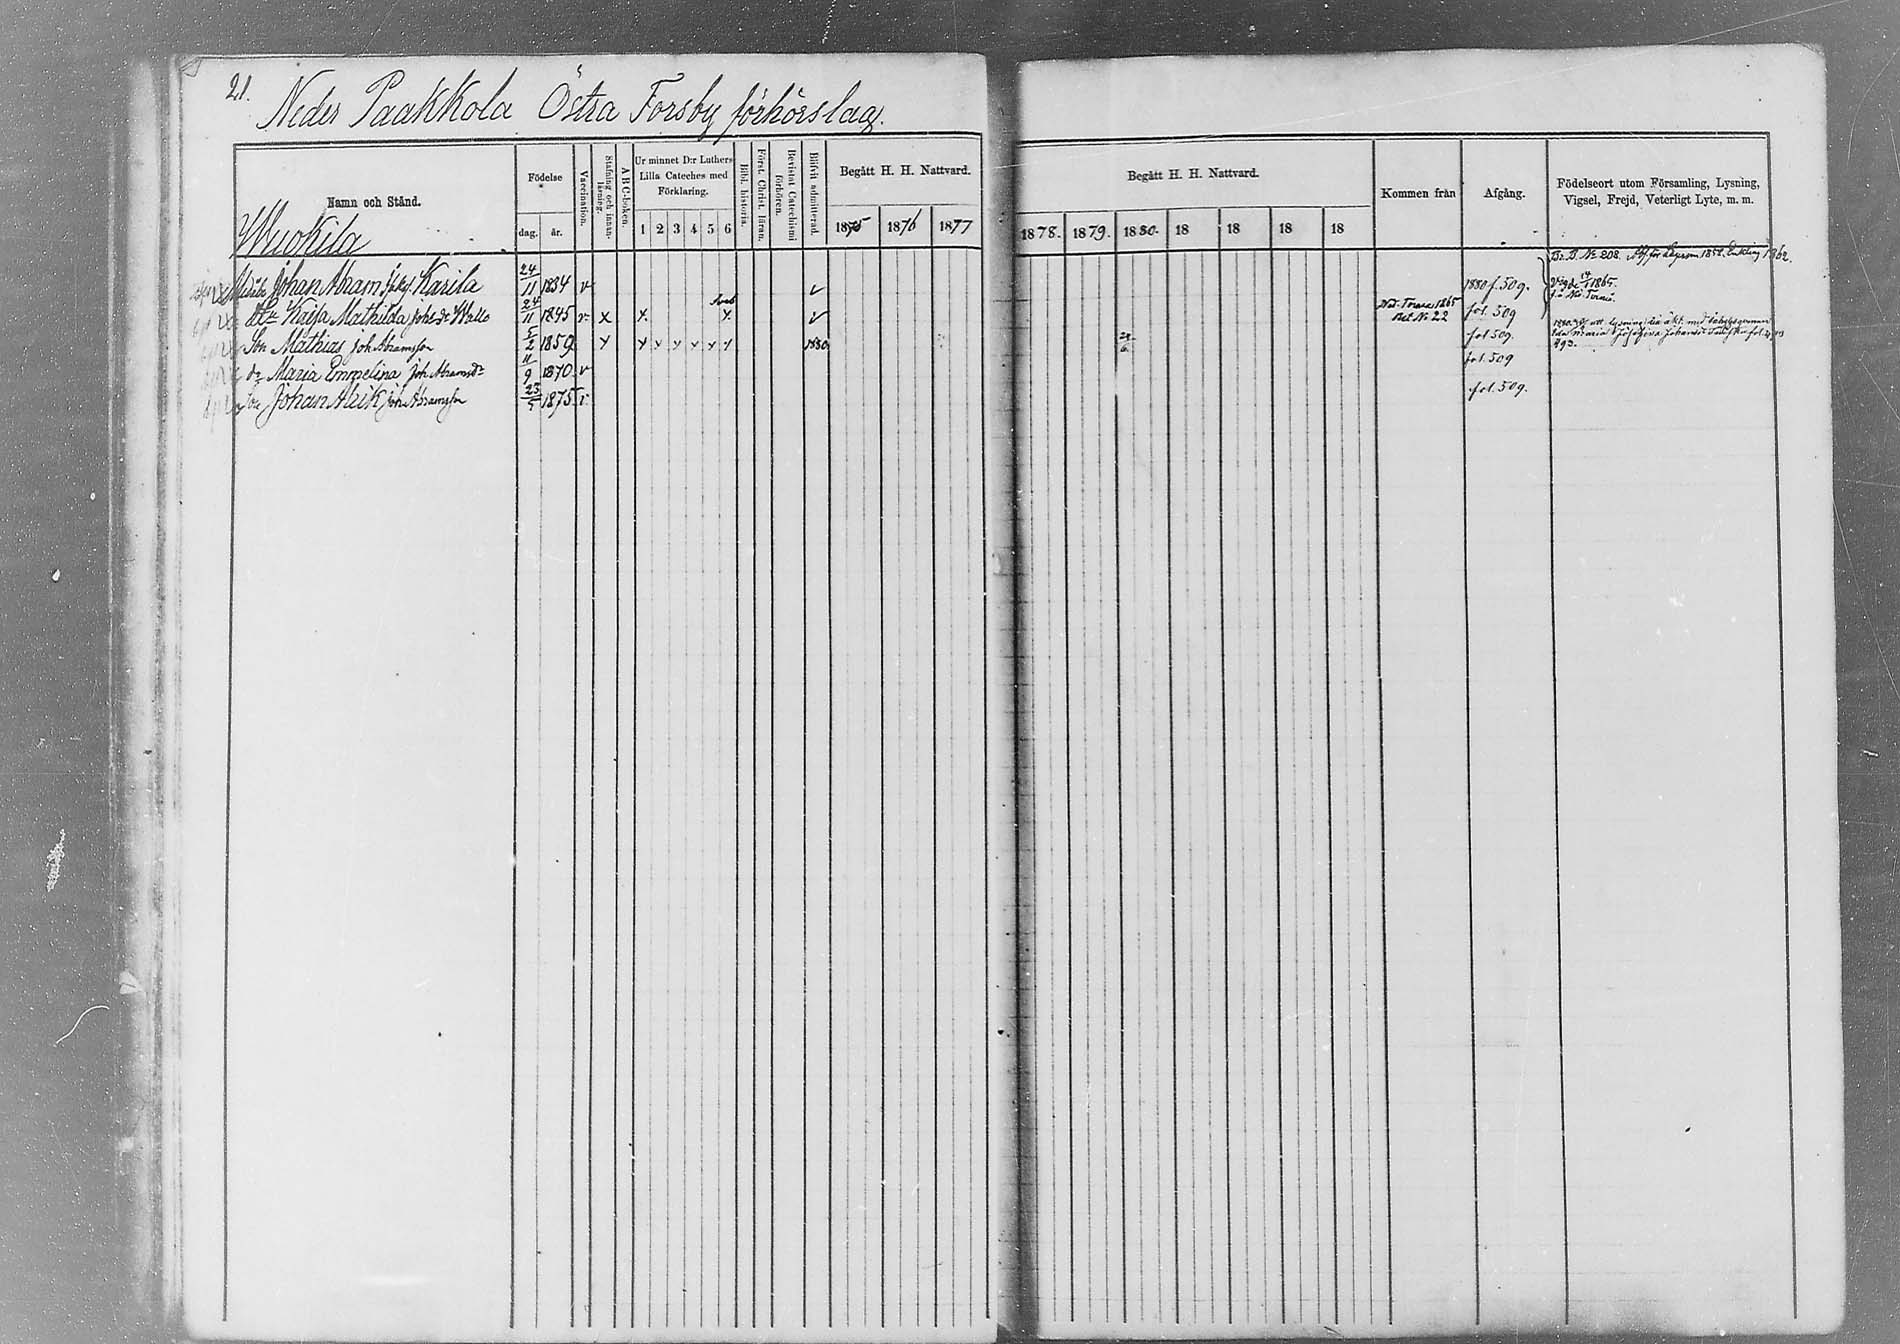 21.
Neder Paakkola Östra Forsby förhörslag.
Namn och Stånd.
Födelse
dag. år.
Vaccination.
Stafning och innanläsning.
ABC-boken.
Ur minnet D:r Luthers
Lilla Cateches med
Förklaring.
1 2 3 4 5 6
Bibl. historia.
Först. Christ. läran.
Bevistat Catechismi förhören.
Blifvit admitterad.
Begått H. H. Nattvard.
1875 1876 1877
Begått H. H. Nattvard.
1878. 1879. 1880. 18 18 18 18
Kommen från
Afgång.
Födelseort utom Församling, Lysning,
Vigsel, Frejd, Veterligt Lyte, m. m.
Muokila
Br. B. № 208. 1862.
Johan Abram Karila 24/11 1834 v v 1880 f. 509. Vigde 1865.
Kaisa Mathilda Johs dr Wallo 24/11 1845 v x x x v Ned. Torneå 1865 Bet № 22 fol. 509
Son Mathias Joh Abramsson 5/2 1859 x x x x x x x 1880 fol 509.
dr Maria Emmelina Joh Abramsdr 11/9 1870 v fol. 509
Son Johan Alrik Joh Abramsson 23/5 1875 v fol. 509.